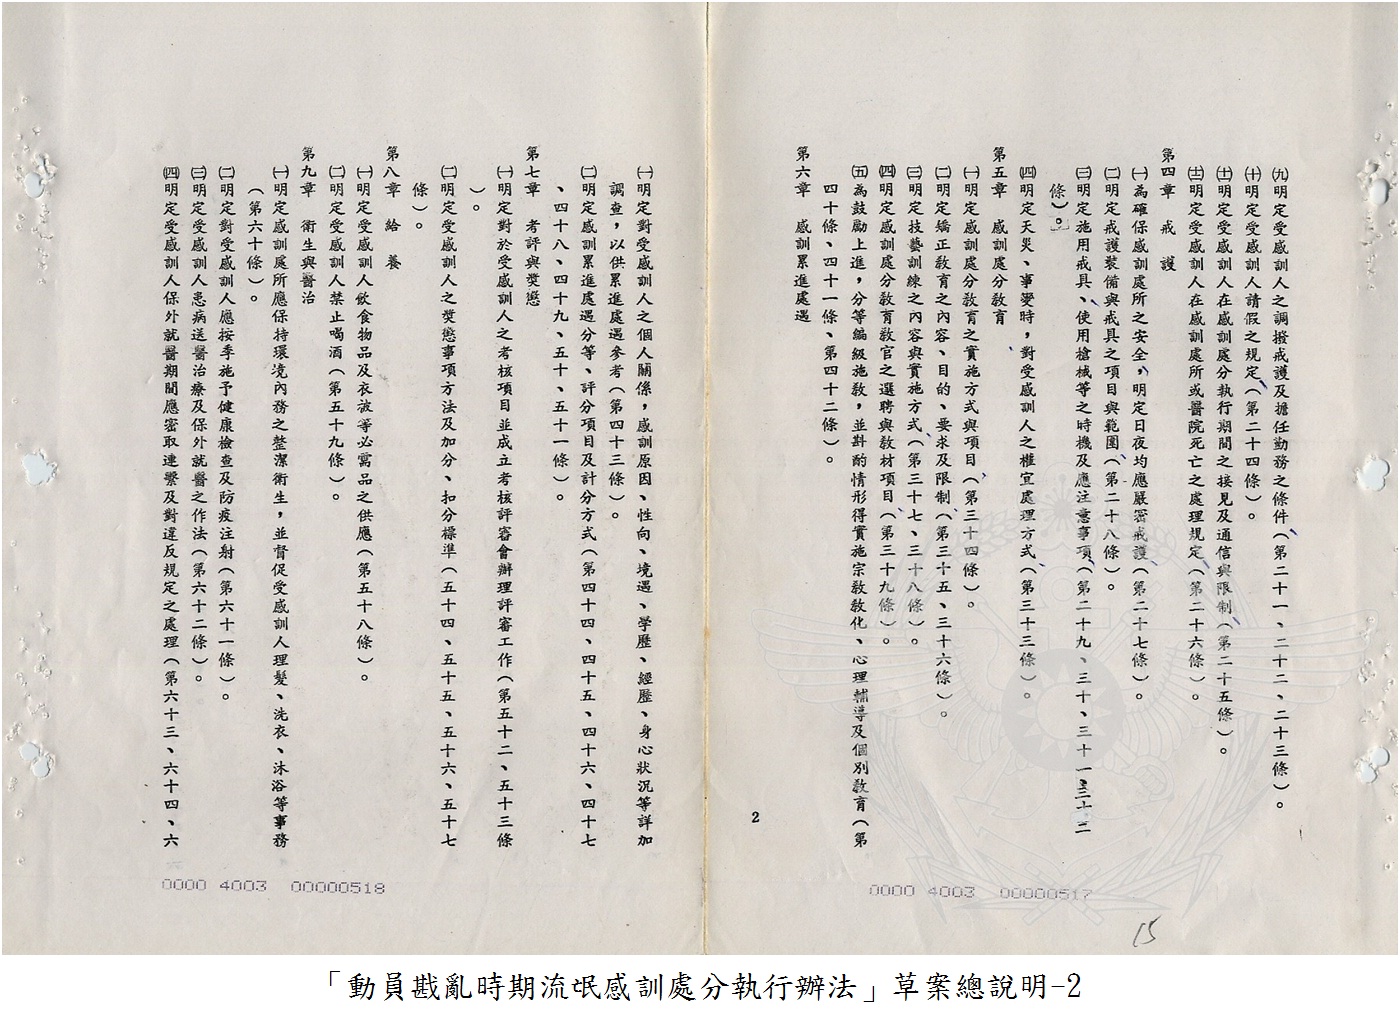 ㈨明定受感訓人之調撥戒護及擔任勤務之條件（第二十一、二十二、二十三條）。
㈩明定受感訓人請假之規定（第二十四條）。
㈩㈠明定受感訓人在感訓處分執行期間之接見及通信與限制（第二十五條）。
㈩㈡明定受感訓人在感訓處所或醫院死亡之處理規定（第二十六條）。
第四章　戒　護
㈠為確保感訓處所之安全，明定日夜均應嚴密戒護（第二十七條）。
㈡明定戒護裝備與戒具之項目與範圍（第二十八條）。
㈢明定施用戒具、使用槍械等之時機及應注意事項（第二十九、三十、三十一、三十二
條）。
㈣明定天災、事變時，對受感訓人之權宜處理方式（第三十三條）。
第五章　感訓處分教育
㈠明定感訓處分教育之實施方式與項目（第三十四條）。
㈡明定矯正教育之內容、目的、要求及限制（第三十五、三十六條）。
㈢明定技藝訓練之內容與實施方式（第三十七、三十八條）。
㈣明定感訓處分教育教官之選聘與教材項目（第三十九條）。
㈤為鼓勵上進，分等編級施教，並斟酌情形得實施宗教教化、心理輔導及個別教育（第
四十條、四十一條、第四十二條）。
第六章　感訓累進處遇
2
0000 4003 00000517
15
㈠明定對受感訓人之個人關係，感訓原因、性向、境遇、學歷、經歷、身心狀況等詳加
調查，以供累進處遇參考（第四十三條）。
㈡明定感訓累進處遇分等、評分項目及計分方式（第四十四、四十五、四十六、四十七
、四十八、四十九、五十、五十一條）。
第七章　考評與獎懲
㈠明定對於受感訓人之考核項目並成立考核評審會辦理評審工作（第五十二、五十三條
）。
㈡明定受感訓人之獎懲事項方法及加分、扣分標準（五十四、五十五、五十六、五十七
條）。
第八章　給　養
㈠明定受感訓人飲食物品及衣被等必需品之供應（第五十八條）。
㈡明定受感訓人禁止喝酒（第五十九條）。
第九章　衛生與醫治
㈠明定感訓處所應保持環境內務之整潔衛生，並督促受感訓人理髮、洗衣、沐浴等事務
（第六十條）。
㈡明定對受感訓人應按季施予健康檢查及防疫注射（第六十一條）。
㈢明定受感訓人患病送醫治療及保外就醫之作法（第六十二條）。
㈣明定受感訓人保外就醫期間應密取連繫及對違反規定之處理（第六十三、六十四、六
0000 4003 00000518
「動員戡亂時期流氓感訓處分執行辦法」草案總說明-2